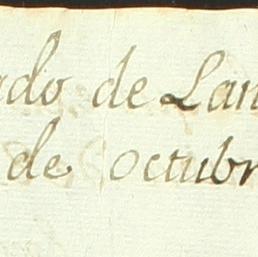 ado de Lan
de octubr